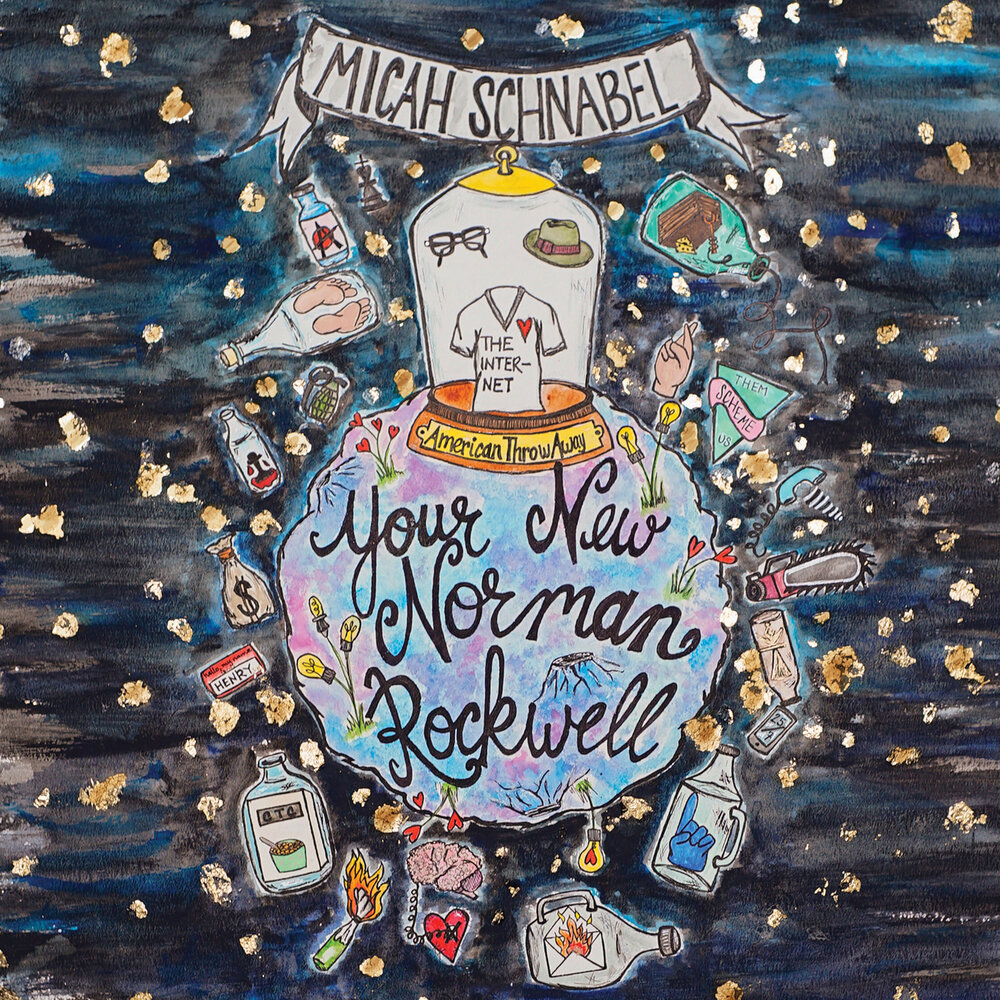 MICAH SCHNABEL
THE
INTER-
NET
American Throw Away
THEM
SCHEME
US
Your New
Norman
Rockwell
$
hello, my name is
HENRY